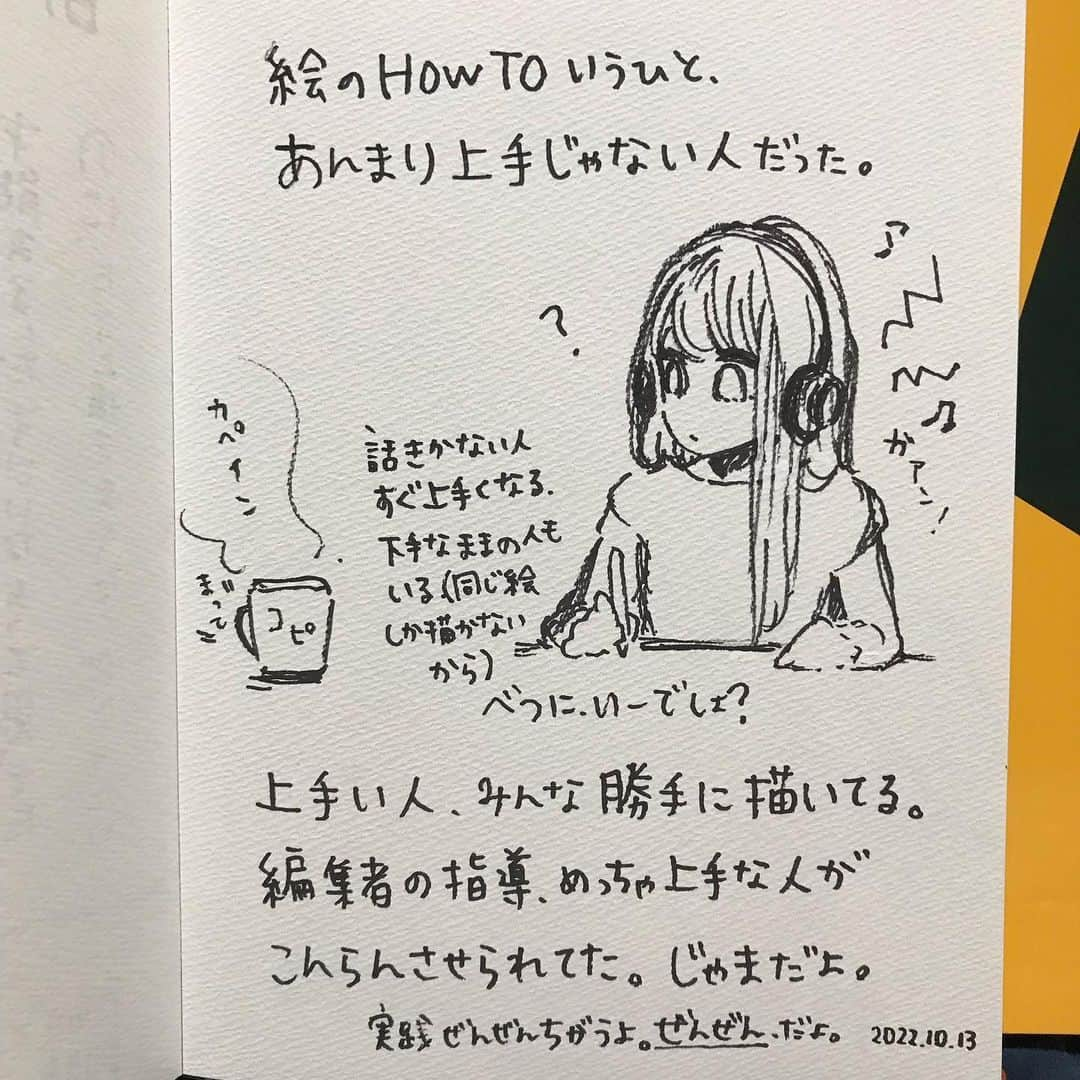 絵のHOW TOいうひと、
あんまり上手じゃない人だった。
?
カペイン
まって
コピ
話きかない人
すぐ上手くなる.
下手なままの人も
いる(同じ絵
しか描かない
から)
ガァン!
べつに.いーでしょ?
上手い人、みんな勝手に描いてる。
編集者の指導、めっちゃ上手な人が
こんらんさせられてた。じゃまだよ。
実践ぜんぜんちがうよ。ぜんぜん.だよ。 2022.10.13